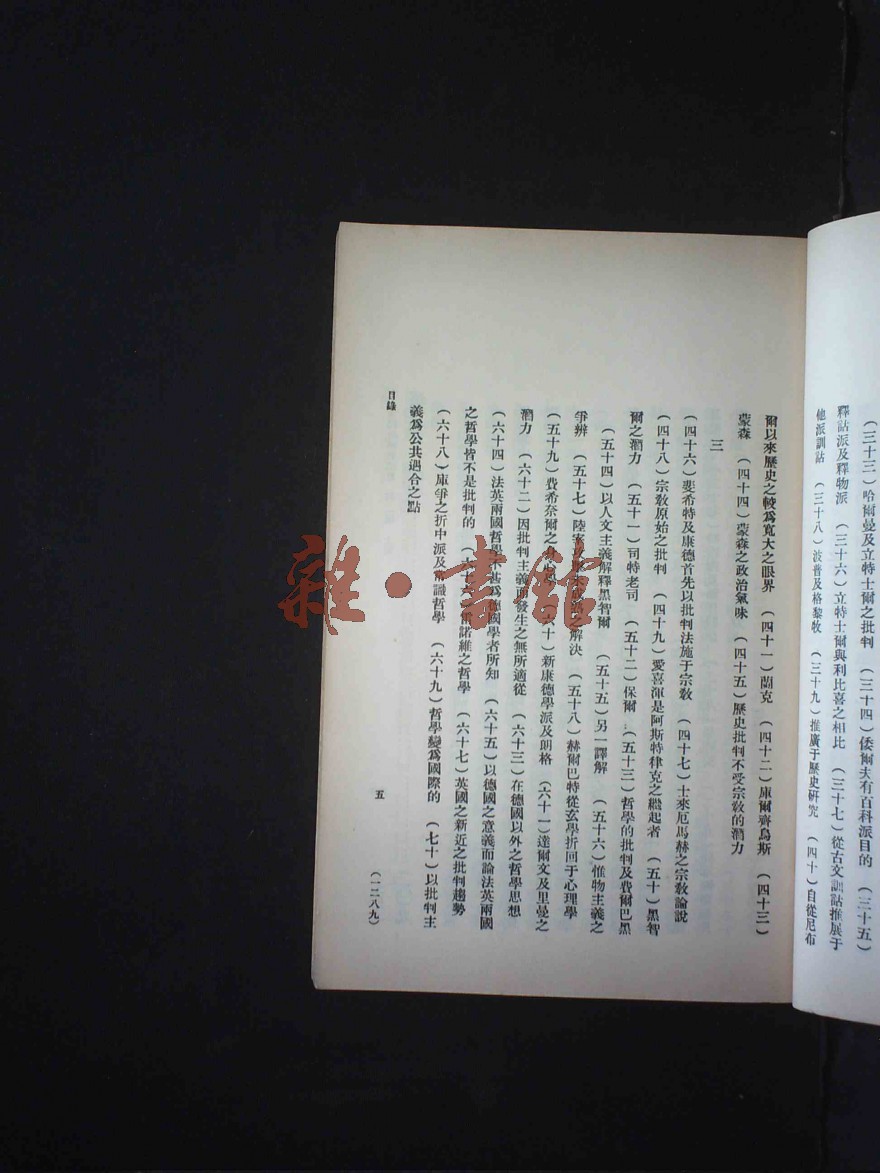 （三十三）哈爾曼及立特士爾之批判　（三十四）倭爾夫有百科派目的　（三十五）
釋詁派及釋物派　（三十六）立特士爾與利比喜之相比　（三十七）從古文訓詁推展于
他派訓詁　（三十八）波普及格黎牧　（三十九）推廣于歷史研究　（四十）自從尼布
爾以來歷史之較爲寬大之眼界　（四十一）蘭克　（四十二）庫爾齊烏斯　（四十三）
蒙森　（四十四）蒙森之政治氣味　（四十五）歷史批判不受宗敎的潛力
三
（四十六）斐希特及康德首先以批判法施于宗敎　（四十七）士來厄馬赫之宗敎論說
（四十八）宗敎原始之批判　（四十九）愛喜渾是阿斯特律克之繼起者　（五十）黑智
爾之潛力　（五十一）司特老司　（五十二）保爾　（五十三）哲學的批判及費爾巴黑
（五十四）以人文主義解釋黑智爾　（五十五）另一譯解　（五十六）惟物主義之
爭辨　（五十七）陸宰之解決　（五十八）赫爾巴特從玄學折回于心理學
（五十九）費希奈爾之身心學　（六十）新康德學派及朗格　（六十一）達爾文及里曼之
潛力　（六十二）因批判主義而發生之無所適從　（六十三）在德國以外之哲學思想
（六十四）法英兩國哲學不甚爲德國學者所知　（六十五）以德國之意義而論法英兩國
之哲學皆不是批判的　（六十六）雷諾維之哲學　（六十七）英國之新近之批判趨勢
（六十八）庫爭之折中派及常識哲學　（六十九）哲學變爲國際的　（七十）以批判主
義爲公共遇合之點
目錄
五
（一二八九）
雜·書館